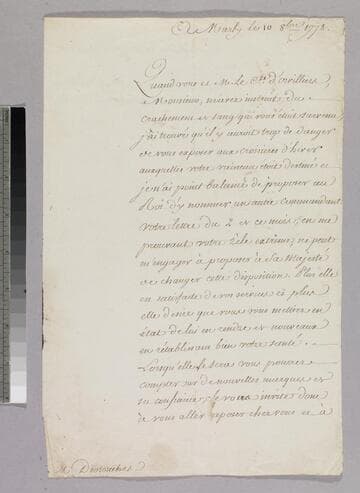 A Marly le 10 8bre 1778.
Quand vous et M. le Cte d'orvilliers,
Monsieur, m'avez instruit du
crachement de sang qui vous étoit survenu,
j'ai trouvé qu'il y auroit trop de danger
de vous exposer aux croisieres d'hiver
auxquelles votre vaisseau étoit destiné et
je n'ai point balancé de proposer au
Roi d'y nommer un autre Commandant.
votre lettre du 2 de ce mois, en me
prouvant votre zèle extrême, ne peut
m'engager à proposer à Sa Majesté
de changer cette disposition. Plus elle
est satisfaite de vos services et plus
elle desire que vous vous mettiez en
état de lui en rendre de nouveaux
en rétablissant bien votre santé.
Lorsqu'elle le sera vous pourrez
compter sur de nouvelles marques de
sa confiance. Je vous invite donc
de vous aller reposer chez vous et à
M.